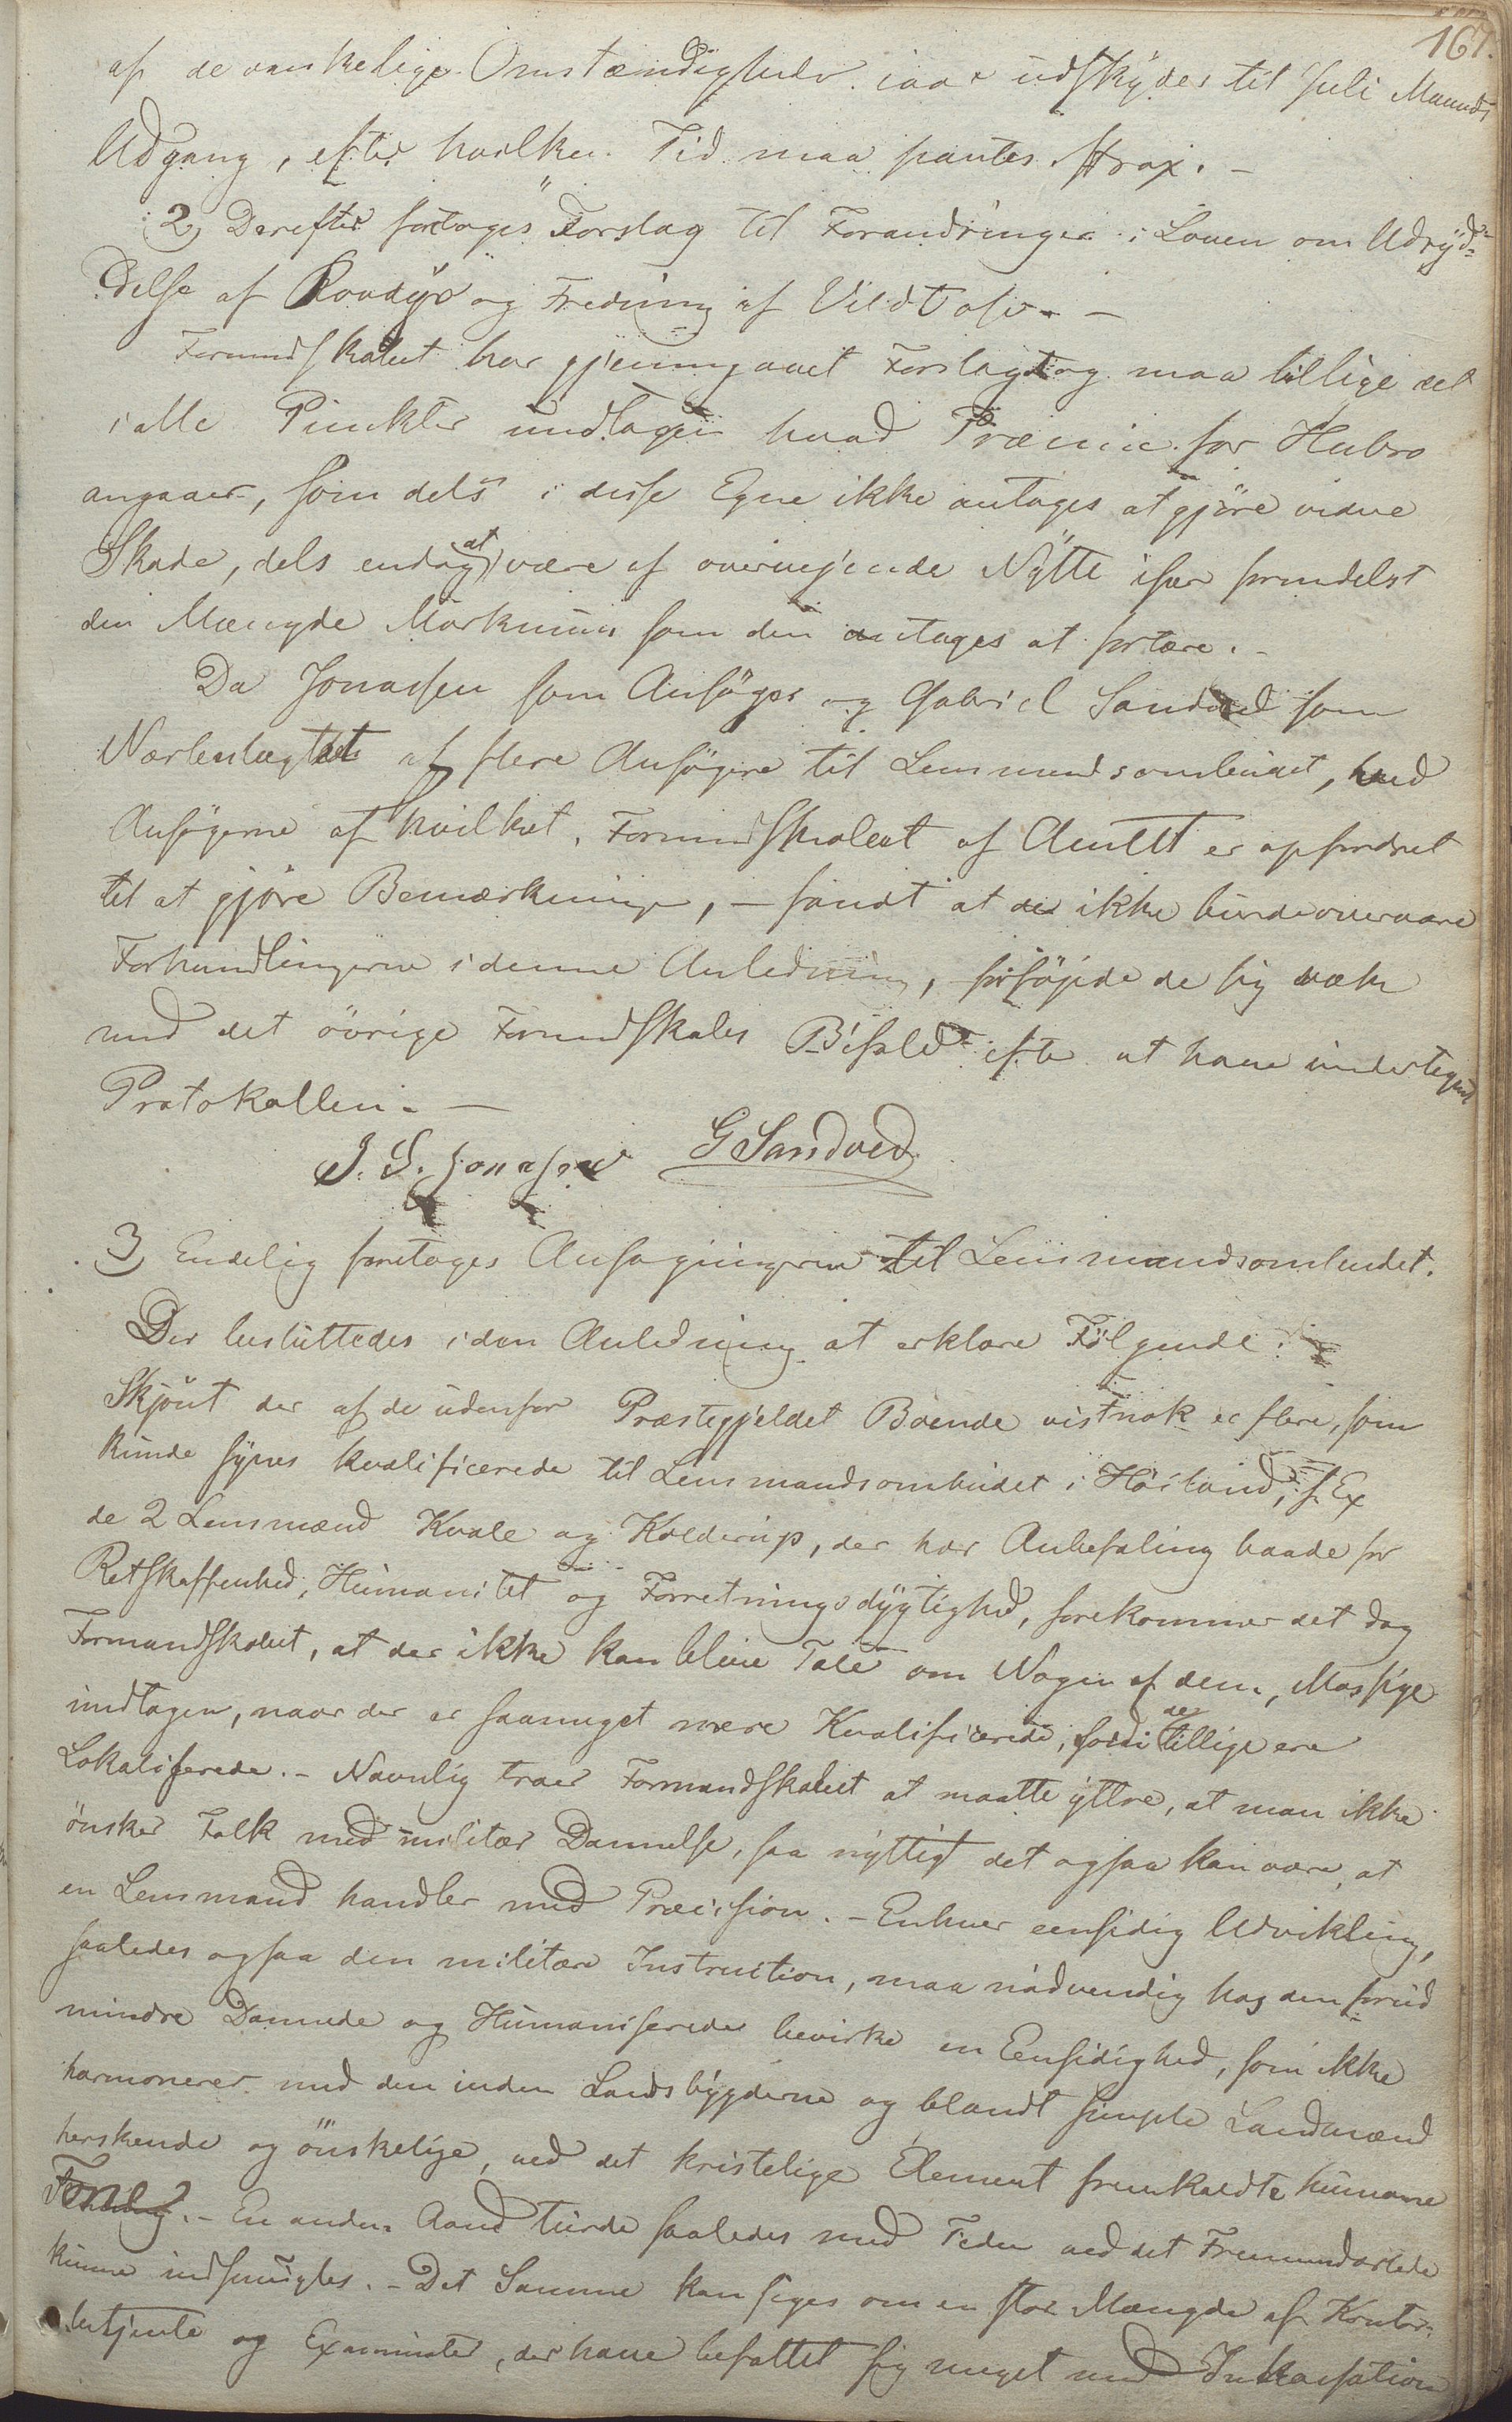 167.
af de vanskelige Omstændigheder iaar udskydes til Juli Maaneds
Udgang, efter hvilken Tid maa pantes strax. -
2) Derefter foretoges Forslag til Forandringer i Loven om Udryd-
delse af Rovdyr og Fredning af Vildt ofv. -
Formandskabet har gjennemgaaet Forslaget og maa billige det
i alle Punkter undtagen hvad Præmie for Hubro
angaaer, som dels i disse Egne ikke antages at gjøre videre
Skade, dels endog at være af overvejende Nytte især formedelst
den Mængde Markmuus som den antages at fortære. -
Da Jonassen som Ansøger og Gabriel Sandved som
Nærbeslægtet af flere Ansøgere til Lensmandsombudet, hvad
Ansøgerne af hvilket Formandskabet af Amtet er opfordret
til at gjøre Bemærkninger, - fandt at de ikke burde overvære
Forhandlingerne i denne Anledning, forføjede de sig væk
med det øvrige Formandskabs Bifald efter at have undertegnet
Protokollen. -
J. S. Jonassen G Sandved
3) Endelig foretoges Ansøgningerne til Lensmandsombudet.
Der besluttedes i den Anledning at erklære Følgende:
Skjønt der af de udenfor Præstegjeldet Boende vistnok er flere, som
kunde synes kvalificerede til Lensmandsombudet i Høiland, f. Ex
de 2 Lensmænd Kvale og Kolderup, der har Anbefaling baade for
Retskaffenhed, Humanitet og Forretningsdygtighed, forekommer det dog
Formandskabet, at der ikke kan blive Tale om Nogen af dem, Massige
undtagen, naar der er saameget mere Kvalificerede, fordi de tillige ere
Lokaliserede. - Navnlig troer Formandskabet at maatte yttre, at man ikke
ønsker Folk med militær Dannelse, saa nyttigt det ogsaa kan være, at
en Lensmand handler med Præcision. - Enhver eensidig Udvikling,
saaledes ogsaa den militære Instruction, maa nødvendig hos den forud
mindre Dannede og Humaniserede bevirke en Eensidighed, som ikke
harmonerer med den inden Landsbygderne og blandt simple Landmænd
herskende og ønskelige, ved det kristelige Element fremkaldte humane
Tone. - En anden Aand turde saaledes med Tiden ved det Fremmedartede
kunne indsmugles. - Det Samme kan siges om en stor Mængde af Kontor-
betjente og Examinater, der have befattet sig meget med Inkassation